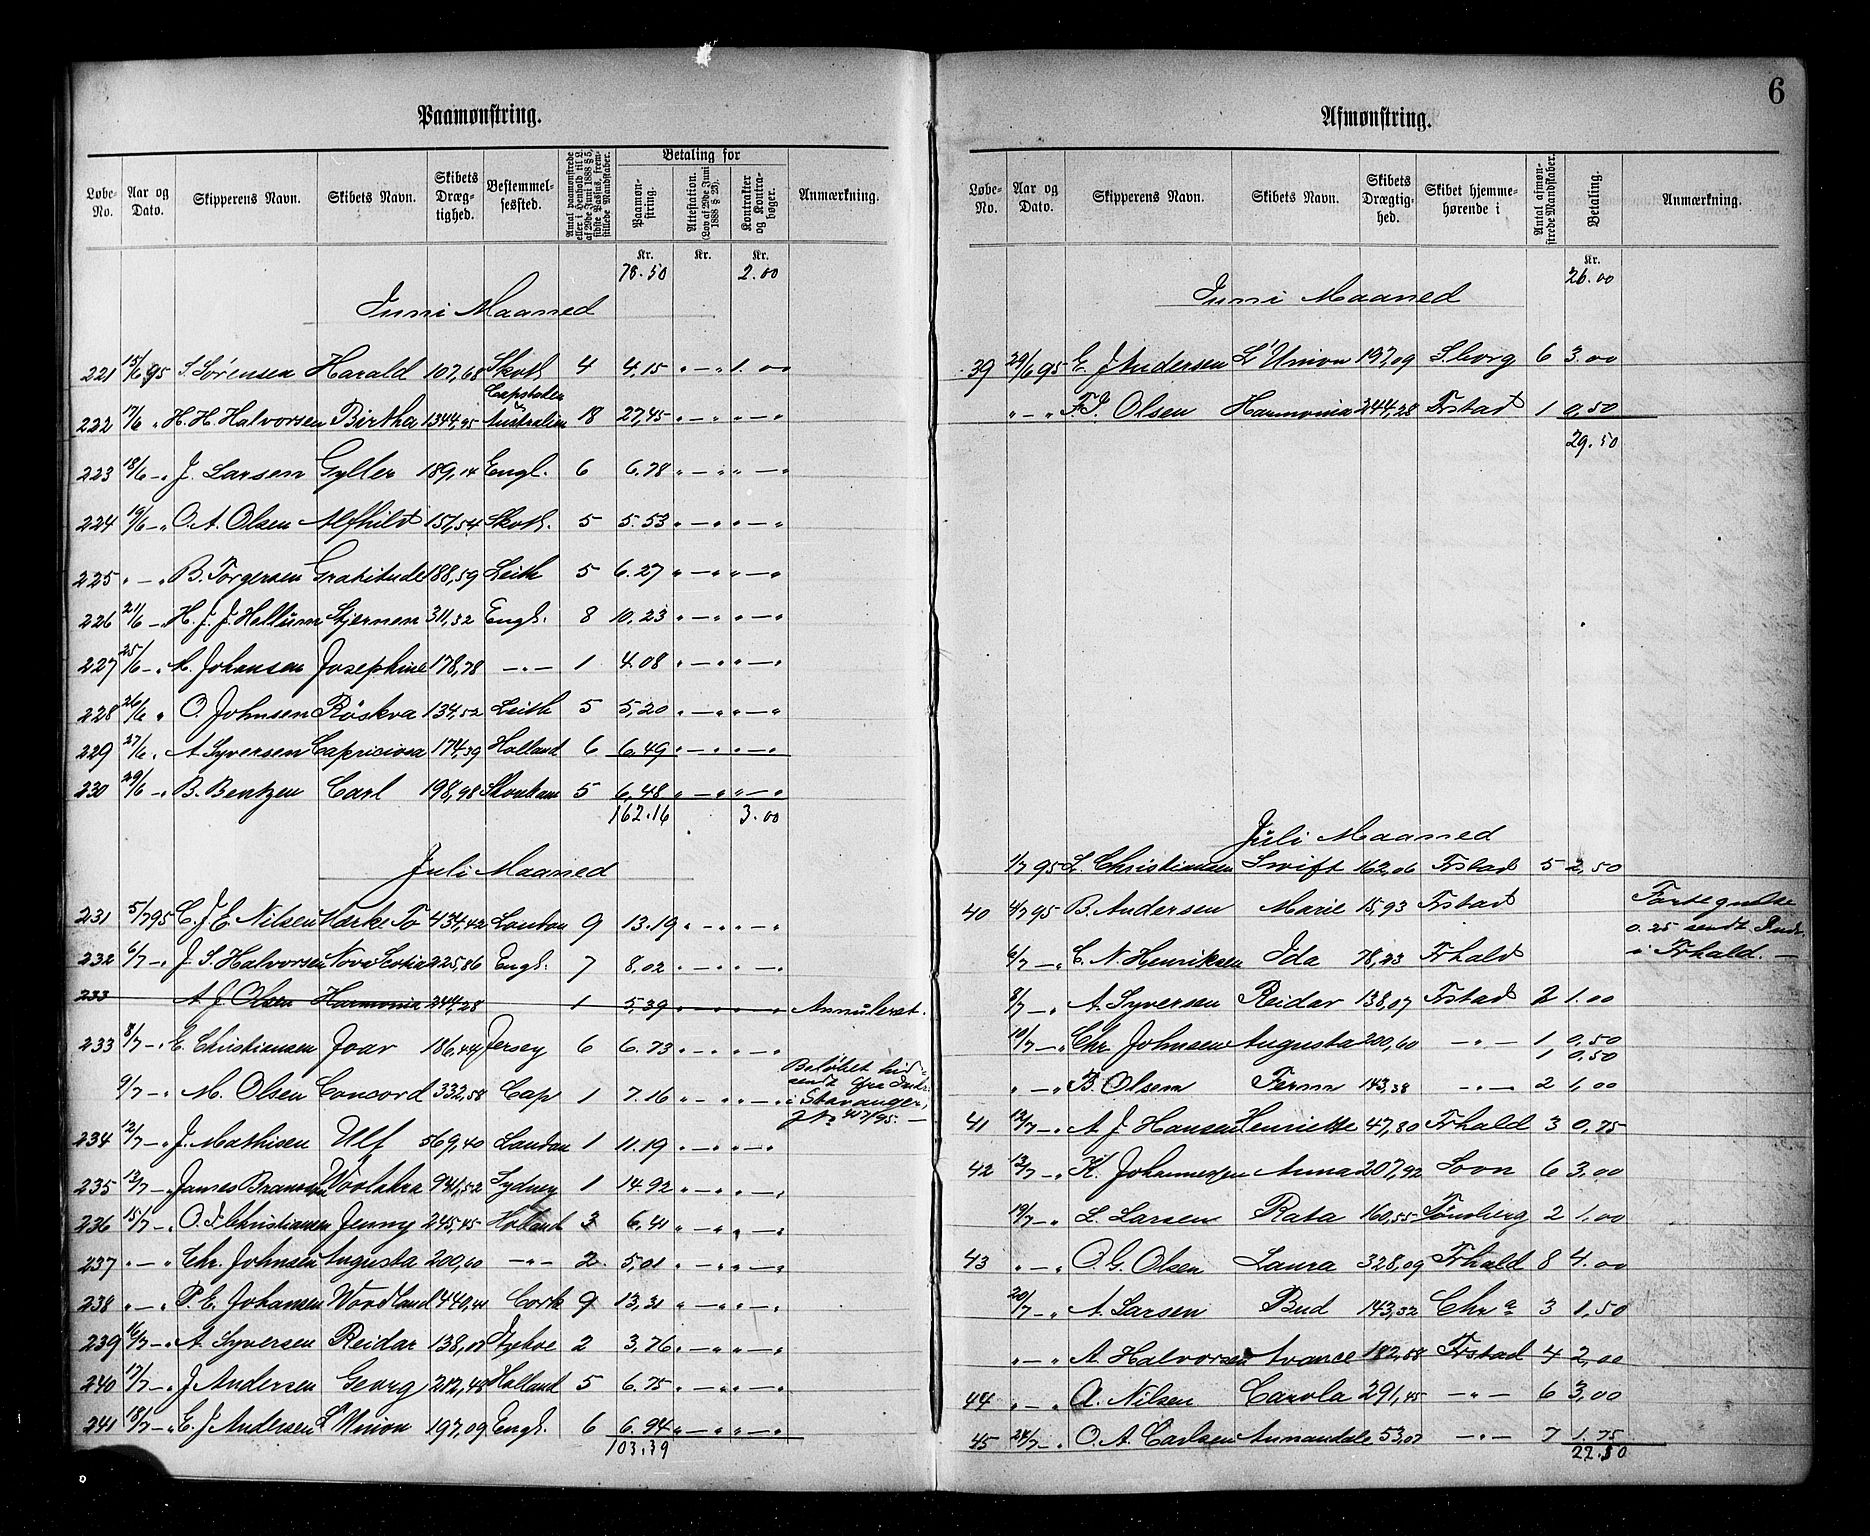 Paamønstring.
Løbe-No. | Aar og Dato. | Skipperens Navn. | Skibets Navn. | Skibets Dræg-tighed. | Bestemmel-sessted. | Betaling for | Paamøn-string. | Attestation. (Lov af 29de Juni 1888 § 23). | Kontrakter og Kontra-bøger. | Anmærkning.
Kr. | Kr. | Kr.
78.50 | 2.00
Juni Maaned
221 | 15/6 95 | S. Sørensen | Harald | 107,68 | Skotl. | 4 | 4,15 | " — " | 1.00
222 | 17/6 " | H. H. Halvorsen | Birtha | 1344,95 | Capstaden & Australien | 18 | 27,45 | " — " | " — "
223 | 18/6 — " | J. Larsen | Gyller | 189,14 | Engl. | 6 | 6.78 | " — " | " — "
224 | 19/6 — " | O. A. Olsen | Alfhild | 157,54 | Skotl. | 5 | 5.53 | " — " | " — "
225 | " — " | B. Torgersen | Gratitude | 188,59 | Leith | 5 | 6.27 | " — " | " — "
226 | 21/6 — " | H. J. J. Hellum | Stjernen | 311,32 | Engl. | 8 | 10.23 | " — " | " — "
227 | 25/6 — " | A. Johansen | Josephine | 178,78 | — " — | 1 | 4.08 | " — " | " — "
228 | 26/6 " | O. Johnsen | Røskva | 134,52 | Leith | 5 | 5,20 | " — " | " — "
229 | 27/6 " | A. Syversen | Capriciosa | 174,39 | Holland | 6 | 6,49 | " — " | " — "
230 | 29/6 — " | B. Bentzen | Carl | 198,98 | 5 | 6,48 | " — " | " — "
162.16 | 3.00
Juli Maaned
231 | 5/7 95 | C. J. E. Nilsen | Mærke To | 434,42 | London | 9 | 13.19 | " — " | " — "
232 | 6/7 — " | J. S. Halvorsen | Nova Scotia | 225,86 | Engl. | 7 | 8,02 | " — " | " — "
233 | A. J. Olsen | Harmonia | 244,28 | 1 | 5,39 | " — " | " — " | Annuleret.
233 | 8/7 — " | E. Christiansen | Joar | 186,44 | Jersey | 6 | 6.73 | " — " | " — "
9/7 — " | M. Olsen | Concord | 332,58 | Cap | 1 | 7.16 | " — " | " — " | Beløbet hid-sendt fra i Stavanger,
234 | 12/7 — " | J. Mathisen | Ulf | 569,40 | London | 1 | 11.19 | " — " | " — "
235 | 13/7 — " | James | 941,52 | Sydney | 1 | 14.92 | " — " | " — "
236 | 15/7 — " | O. J. Christiansen | Jenny | 245,45 | Holland | 3 | 6,41 | " — " | " — "
237 | " — " | Chr. Johnsen | Augusta | 200,60 | — " — | 2 | 5,01 | " — " | " — "
238 | " — " | P. E. Johansen | Woodland | 440,41 | Cork | 9 | 13,31 | " — " | " — "
239 | 16/7 — " | A. Syversen | Reidar | 138,07 | 2 | 3,76 | " — " | " — "
240 | 17/7 — " | J. Andersen | Georg | 212,48 | Holland | 5 | 6.75 | " — " | " — "
241 | 18/7 — " | E. J. Andersen | L'Union | 197,09 | Engl. | 6 | 6.94 | " — " | " — "
103.39
6
Afmønstring.
Løbe-No. | Aar og Dato. | Skipperens Navn. | Skibets Navn. | Skibets Drægtig-hed. | Skibet hjemme-hørende i | Antal afmøn-strede Mandskaber. | Betaling. | Anmærkning.
Kr.
26.00
Juni Maaned
39 | 29/6 95 | E. J. Andersen | L'Union | 197,09 | S.borg | 6 | 3.00
" — " | Olsen | Harmonia | 244,28 | Frstad | 1 | 0,50
29.50
Juli Maaned
1/7 95 | L. Christiansen | Swift | 162,06 | Frstad | 5 | 2,50
40 | 4/7 95 | B. Andersen | Marie | 15,93 | Frstad | 0.25 sendt i Frhald. —
6/7 — " | C. N. Henriksen | Ida | 78,23 | Frhald
8/7 — " | A. Syversen | Reidar | 138,07 | Frstad | 2 | 1.00
10/7 — " | Chr. Johnsen | Augusta | 200,60 | — " — | 1 | 0,50
1 | 0,50
" — " | B. Olsen | Ferm | 143,38 | — " — | 2 | 1,00
41 | 12/7 — " | A. J. Hansen | Henriette | 47,80 | Frhald | 3 | 0,75
42 | 13/7 — " | K. Johannessen | Anna | 207,92 | Soon | 6 | 3,00
19/7 — " | L. Larsen | Rata | 160,55 | Tønsberg | 2 | 1,00
43 | " — " | O. G. Olsen | Laura | 328,09 | Frhald | 8 | 4.00
20/7 — " | A. Larsen | Bud | 143,32 | Chr a | 3 | 1,50
" — " | A. Halvorsen | Avance | 182,58 | Frstad | 4 | 2,00
44 | " — " | A. Nilsen | Carola | 291,45 | — " — | 6 | 3,00
45 | 24/7 — " | O. A. Carlsen | Annandale | 53,07 | — " — | 7 | 1.75
22.50